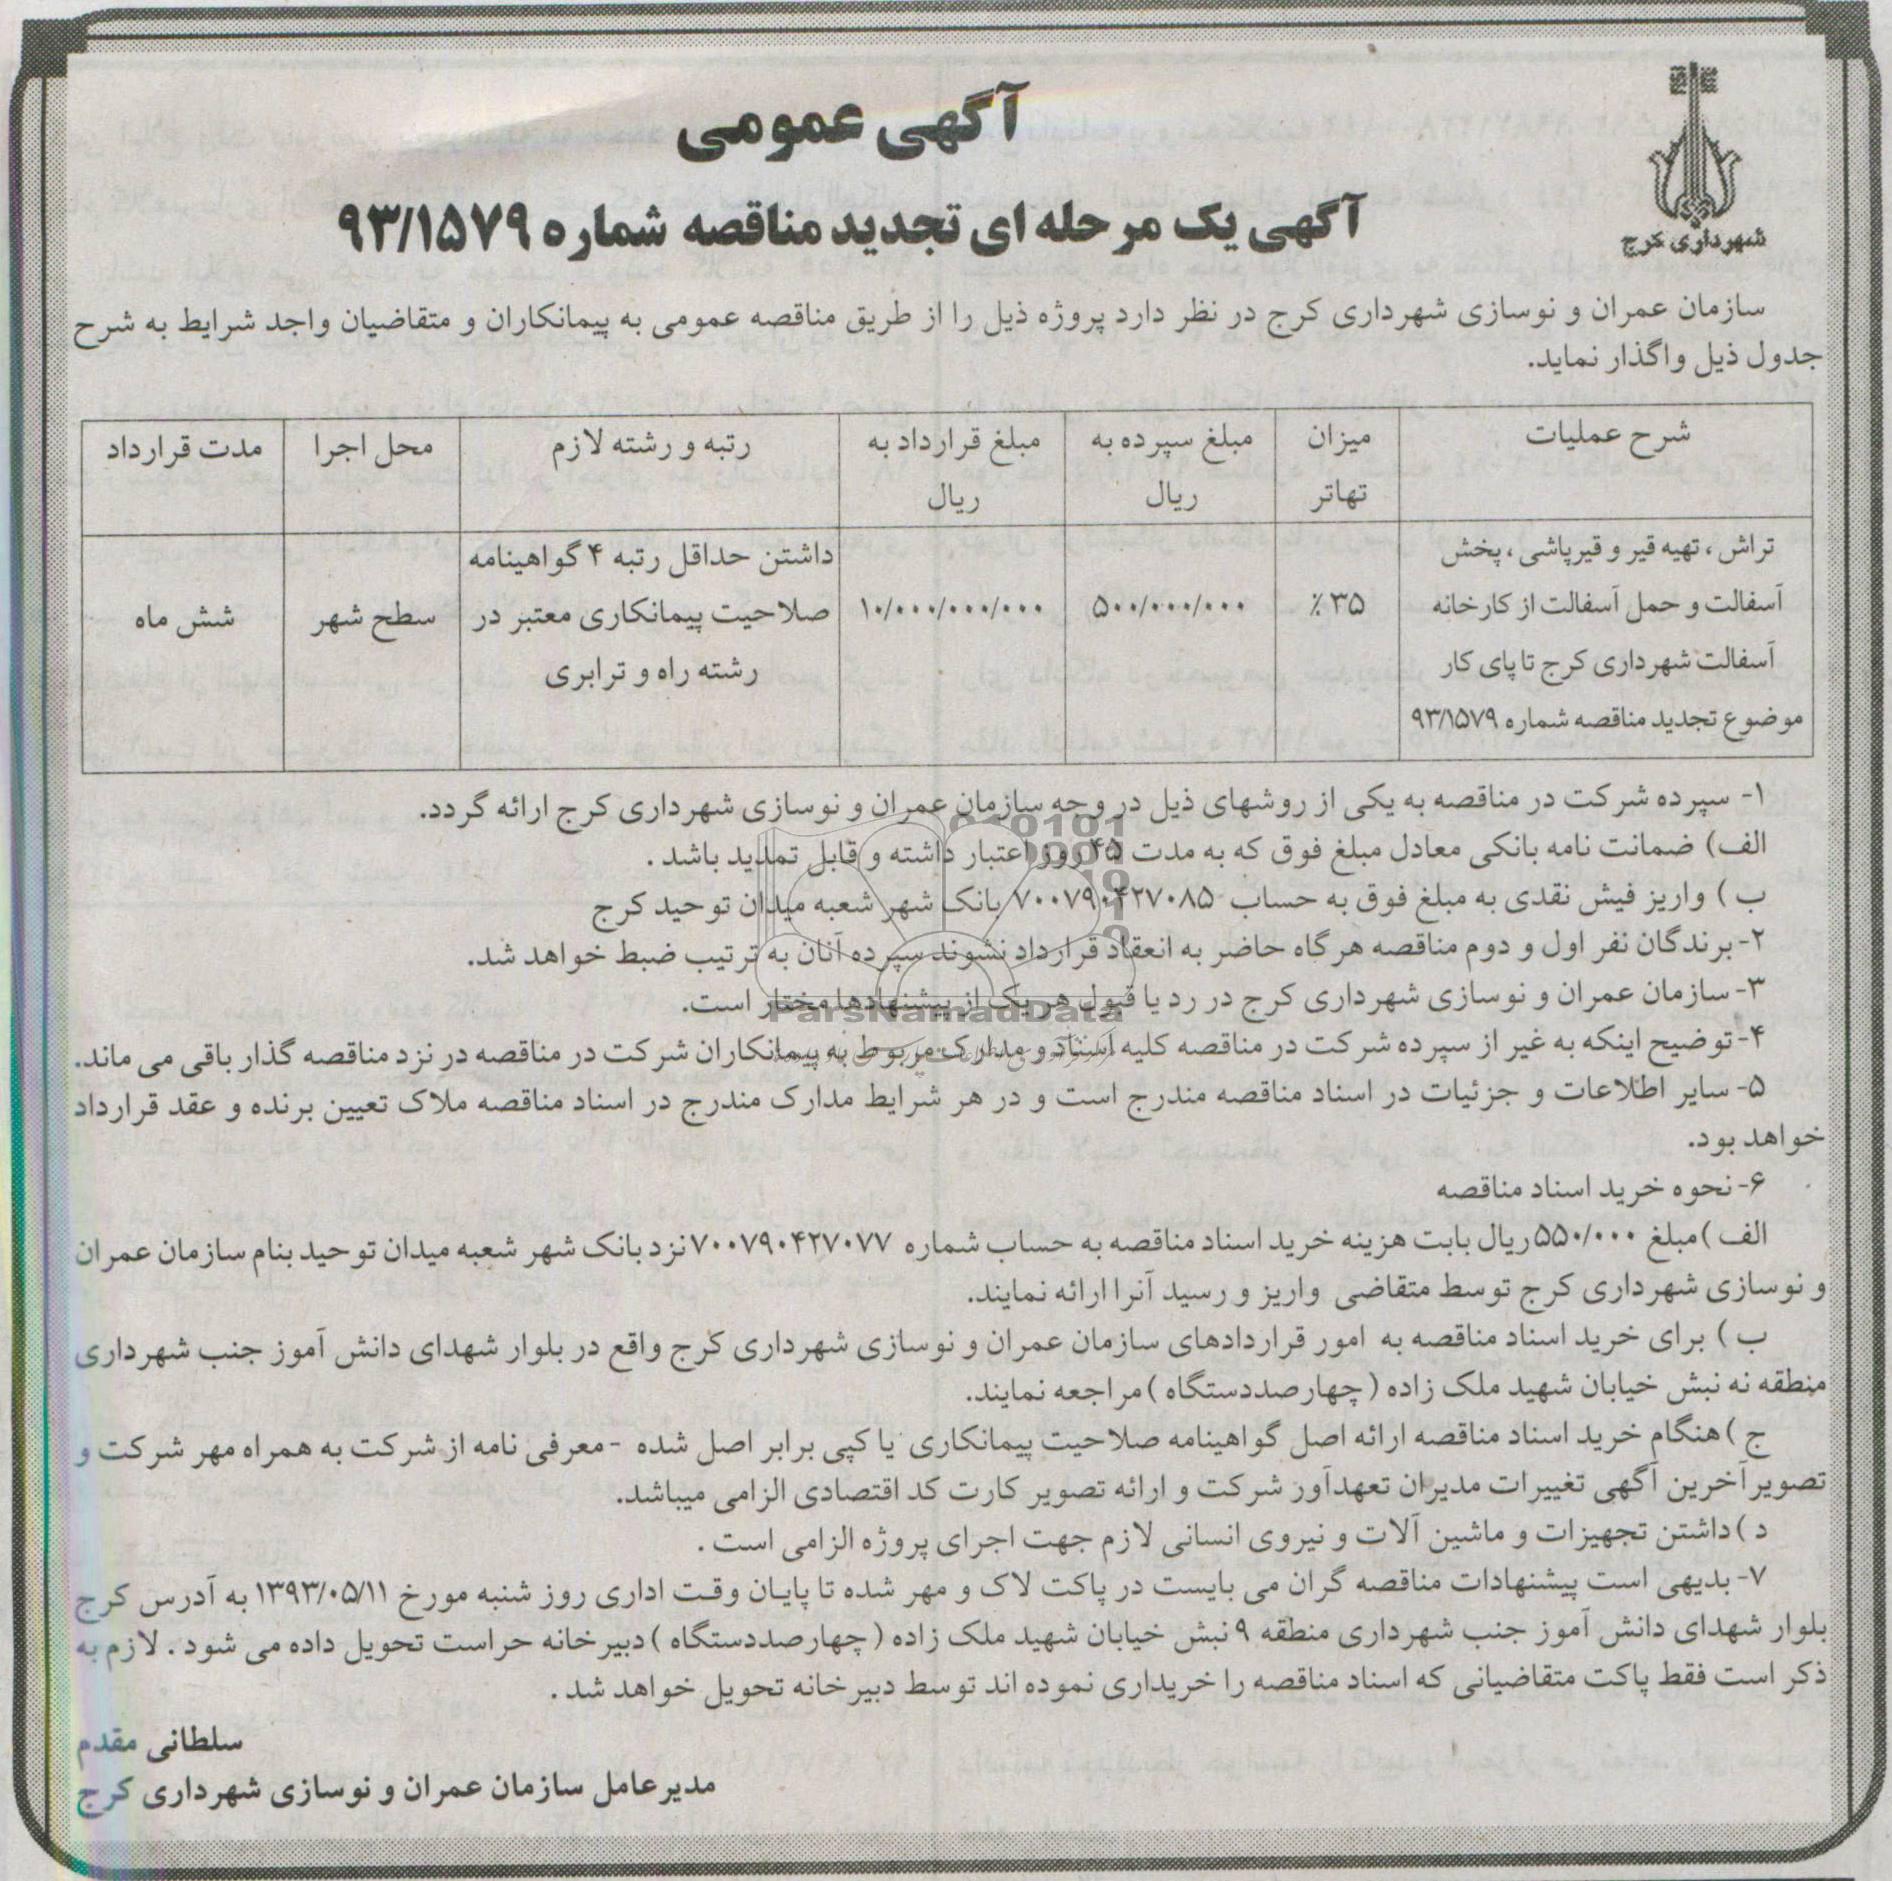 شهرداری کرج
آگهی عمومی
آگهی یک مرحله ای تجدید مناقصه شماره ۹۳/۱۵۷۹
سازمان عمران و نوسازی شهرداری کرج در نظر دارد پروژه ذیل را از طریق مناقصه عمومی به پیمانکاران و متقاضیان واجد شرایط به شرح
جدول ذیل واگذار نماید.
شرح عملیات
میزان
تهاتر
مبلغ سپرده به
ریال
مبلغ قرارداد به
ریال
رتبه و رشته لازم
محل اجرا
مدت قرارداد
تراش ، تهیه قیر و قیرپاشی ، پخش
آسفالت و حمل آسفالت از کارخانه
آسفالت شهرداری کرج تا پای کار
موضوع تجدید مناقصه شماره ۹۳/۱۵۷۹
۳۵ ٪
۵۰۰/۰۰۰/۰۰۰
۱۰/۰۰۰/۰۰۰/۰۰۰
داشتن حداقل رتبه ۴ گواهینامه
صلاحیت پیمانکاری معتبر در
رشته راه و ترابری
سطح شهر
شش ماه
۱- سپرده شرکت در مناقصه به یکی از روشهای ذیل در وجه سازمان عمران و نوسازی شهرداری کرج ارائه گردد.
الف) ضمانت نامه بانکی معادل مبلغ فوق که به مدت ۴۵ روز اعتبار داشته و قابل تمدید باشد .
ب ) واریز فیش نقدی به مبلغ فوق به حساب ۷۰۰۷۹۰۴۲۷۰۸۵ بانک شهر شعبه میدان توحید کرج
۲- برندگان نفر اول و دوم مناقصه هرگاه حاضر به انعقاد قرارداد نشوند سپرده آنان به ترتیب ضبط خواهد شد.
۳- سازمان عمران و نوسازی شهرداری کرج در رد یا قبول هر یک از پیشنهادها مختار است.
ParsNamadData
۴- توضیح اینکه به غیر از سپرده شرکت در مناقصه کلیه اسناد و مدارک مربوط به پیمانکاران شرکت در مناقصه در نزد مناقصه گذار باقی می ماند.
۵- سایر اطلاعات و جزئیات در اسناد مناقصه مندرج است و در هر شرایط مدارک مندرج در اسناد مناقصه ملاک تعیین برنده و عقد قرارداد
خواهد بود.
۶- نحوه خرید اسناد مناقصه
الف )مبلغ ۵۵۰/۰۰۰ ریال بابت هزینه خرید اسناد مناقصه به حساب شماره ۷۰۰۷۹۰۴۲۷۰۷۷ نزد بانک شهر شعبه میدان توحید بنام سازمان عمران
و نوسازی شهرداری کرج توسط متقاضی واریز و رسید آنرا ارائه نمایند.
ب ) برای خرید اسناد مناقصه به امور قراردادهای سازمان عمران و نوسازی شهرداری کرج واقع در بلوار شهدای دانش آموز جنب شهرداری
منطقه نه نبش خیابان شهید ملک زاده ( چهارصددستگاه ) مراجعه نمایند.
ج ) هنگام خرید اسناد مناقصه ارائه اصل گواهینامه صلاحیت پیمانکاری یا کپی برابر اصل شده - معرفی نامه از شرکت به همراه مهر شرکت و
تصویر آخرین آگهی تغییرات مدیران تعهدآور شرکت و ارائه تصویر کارت کد اقتصادی الزامی میباشد.
د ) داشتن تجهیزات و ماشین آلات و نیروی انسانی لازم جهت اجرای پروژه الزامی است .
۷- بدیهی است پیشنهادات مناقصه گران می بایست در پاکت لاک و مهر شده تا پایان وقت اداری روز شنبه مورخ ۱۳۹۳/۰۵/۱۱ به آدرس کرج
بلوار شهدای دانش آموز جنب شهرداری منطقه ۹ نبش خیابان شهید ملک زاده ( چهارصددستگاه ) دبیرخانه حراست تحویل داده می شود . لازم به
ذکر است فقط پاکت متقاضیانی که اسناد مناقصه را خریداری نموده اند توسط دبیرخانه تحویل خواهد شد .
سلطانی مقدم
مدیرعامل سازمان عمران و نوسازی شهرداری کرج